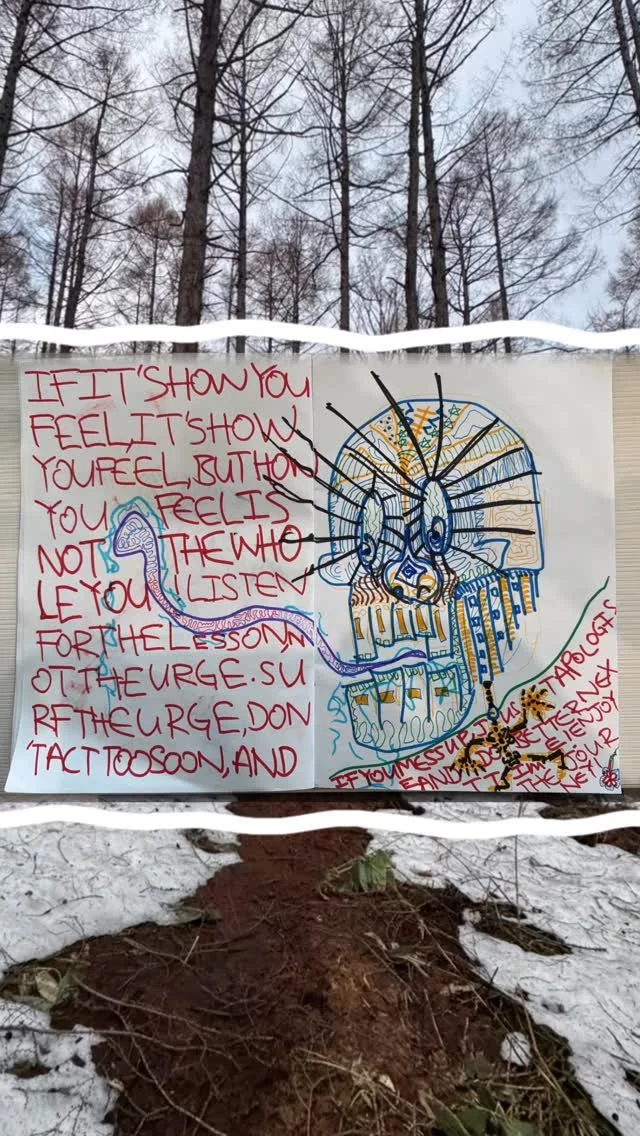 IF IT'S HOW YOU
FEEL, IT'S HOW
YOU FEEL, BUT HOW
YOU FEEL IS
NOT THE WHO
LE YOU LISTEN
FOR THE LESSON, N
OT THE URGE. SU
RF THE URGE, DON
'T ACT TOO SOON, AND
IF YOU MESS UP JUST APOLOGIS
E AND DO BETTER NEX
T TIME ENJOY
THE JOUR
NEY